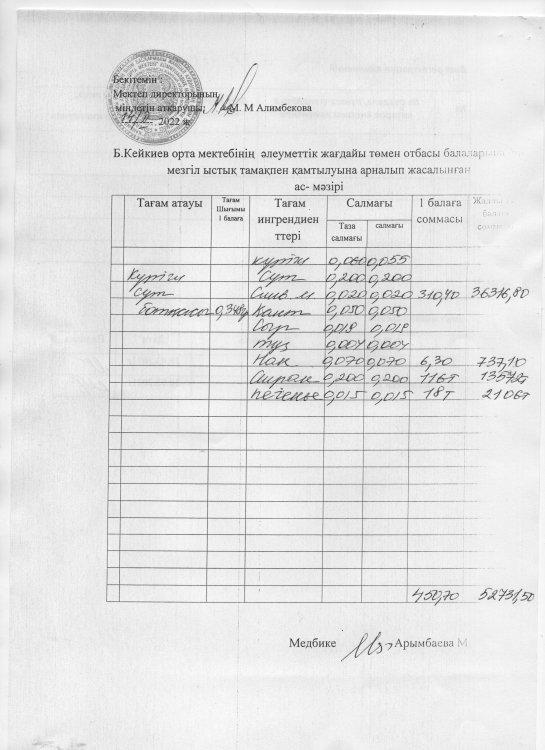 Бекітемін :
Мектеп директорының
міндетін атқарушы: М. М Алимбекова
2022 ж
Б.Кейкиев орта мектебінің әлеуметтік жағдайы төмен отбасы балаларының
мезгіл ыстық тамақпен қамтылуына арналып жасалынған
ас- мәзірі
Тағам атауы Тағам Шығымы 1 балаға Тағам ингрендиен ттері Салмағы 1 балаға соммасы Жалпы балаға соммасы
Таза салмағы салмағы
күріш 0,060 0,055
Күріш сүт 0,200 0,200
сүт Слив. м 0,020 0,020 310,40 36316,80
ботқасы 0,348 Кант 0,050 0,050
Сыр 0,018 0,018
тұз 0,004 0,004
Нан 0,070 0,070 6,30 737,10
Айран 0,200 0,200 116т 13572т
печенье 0,015 0,015 18т 2106т
450,70 52731,50
Медбике Арымбаева М